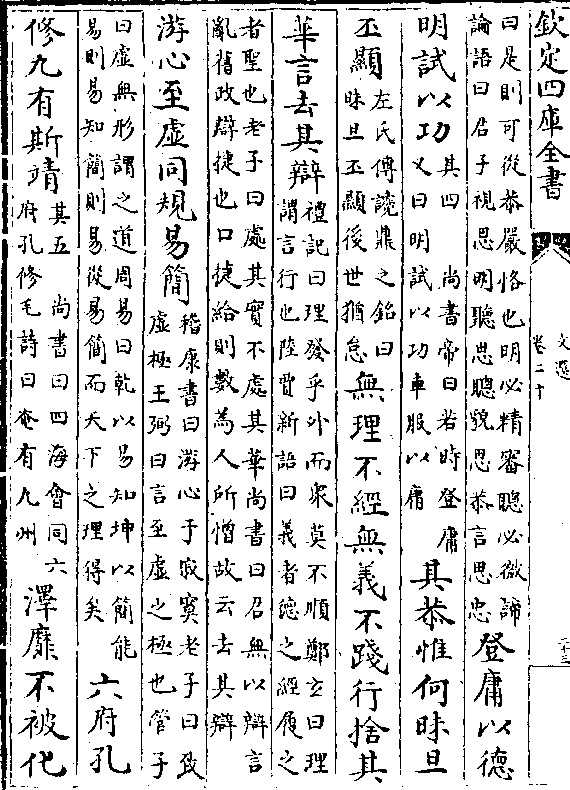 欽定四庫全書
文選
卷二十
二十三
曰是則可從恭嚴恪也明必精審聰必微諦
論語曰君子視思明聽思聰貌思恭言思忠
登庸以德
明試以功
其四 尚書帝曰若時登庸
又曰明試以功車服以庸
其恭惟何昧旦
丕顯
左氏傳讒鼎之銘曰
昧旦丕顯後世猶怠
無理不經無義不踐行捨其
華言去其辯
禮記曰理發乎外而衆莫不順鄭玄曰理
謂言行也陸賈新語曰義者德之經履之
者聖也老子曰處其實不處其華尚書曰君無以辯言
亂舊政辯捷也口捷給則數為人所憎故云去其辯
游心至虛同規易簡
嵇康書曰游心于寂寞老子曰致
虛極王弼曰言至虛之極也管子
曰虛無形謂之道周易曰乾以易知坤以簡能
易則易知簡則易從易簡而天下之理得矣
六府孔
修九有斯靖
其五 尚書曰四海會同六
府孔修毛詩曰奄有九州
澤靡不被化